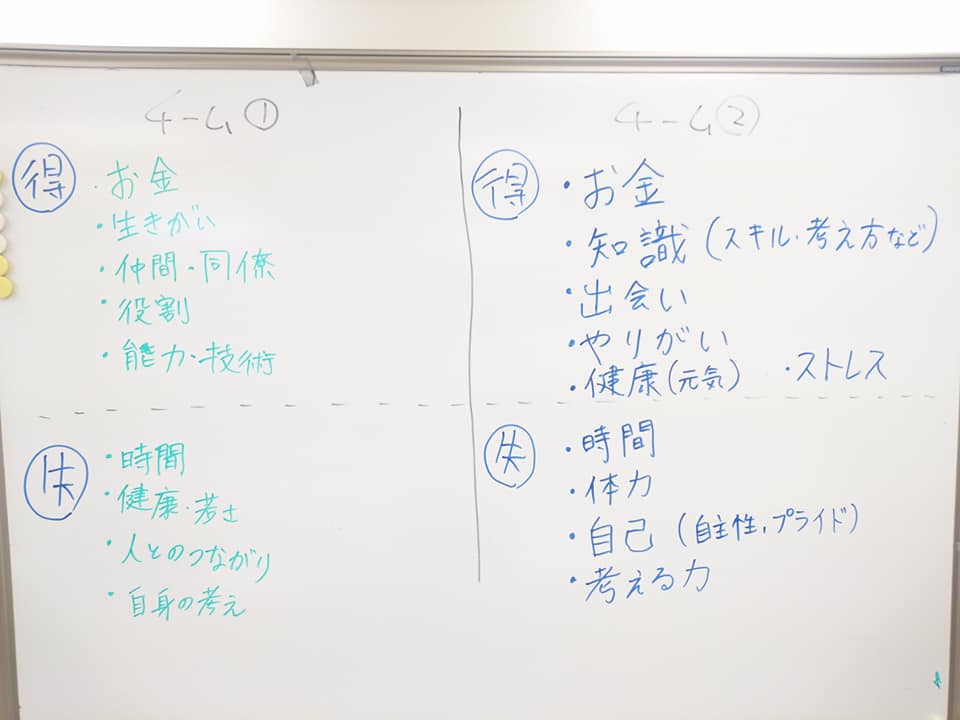 チーム①
得
・お金
・生きがい
・仲間・同僚
・役割
・能力・技術
失
・時間
・健康・若さ
・人とのつながり
・自身の考え
チーム②
得
・お金
・知識(スキル・考え方など)
・出会い
・やりがい
・健康(元気) ・ストレス
失
・時間
・体力
・自己(自主性,プライド)
・考える力